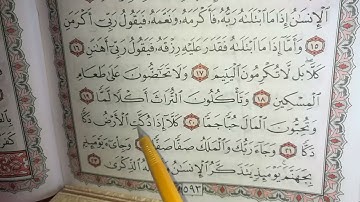 الْإِنسَٰنُ إِذَا مَا ابْتَلَىٰهُ رَبُّهُ فَأَكْرَمَهُ وَنَعَّمَهُ فَيَقُولُ رَبِّي أَكْرَمَنِ
١٥ وَأَمَّا إِذَا مَا ابْتَلَىٰهُ فَقَدَرَ عَلَيْهِ رِزْقَهُ فَيَقُولُ رَبِّي أَهَٰنَنِ ١٦
كَلَّا بَل لَّا تُكْرِمُونَ الْيَتِيمَ ١٧ وَلَا تَحَٰضُّونَ عَلَىٰ طَعَامِ
الْمِسْكِينِ ١٨ وَتَأْكُلُونَ التُّرَاثَ أَكْلًا لَّمًّا ١٩
وَتُحِبُّونَ الْمَالَ حُبًّا جَمًّا ٢٠ كَلَّا إِذَا دُكَّتِ الْأَرْضُ دَكًّا
دَكًّا ٢١ وَجَاءَ رَبُّكَ وَالْمَلَكُ صَفًّا صَفًّا ٢٢ وَجِاْىٓءَ يَوْمَئِذٍۭ
بِجَهَنَّمَ يَوْمَئِذٍ يَتَذَكَّرُ الْإِنسَٰنُ وَأَنَّىٰ لَهُ الذِّكْرَىٰ ٢٣
٥٩٣